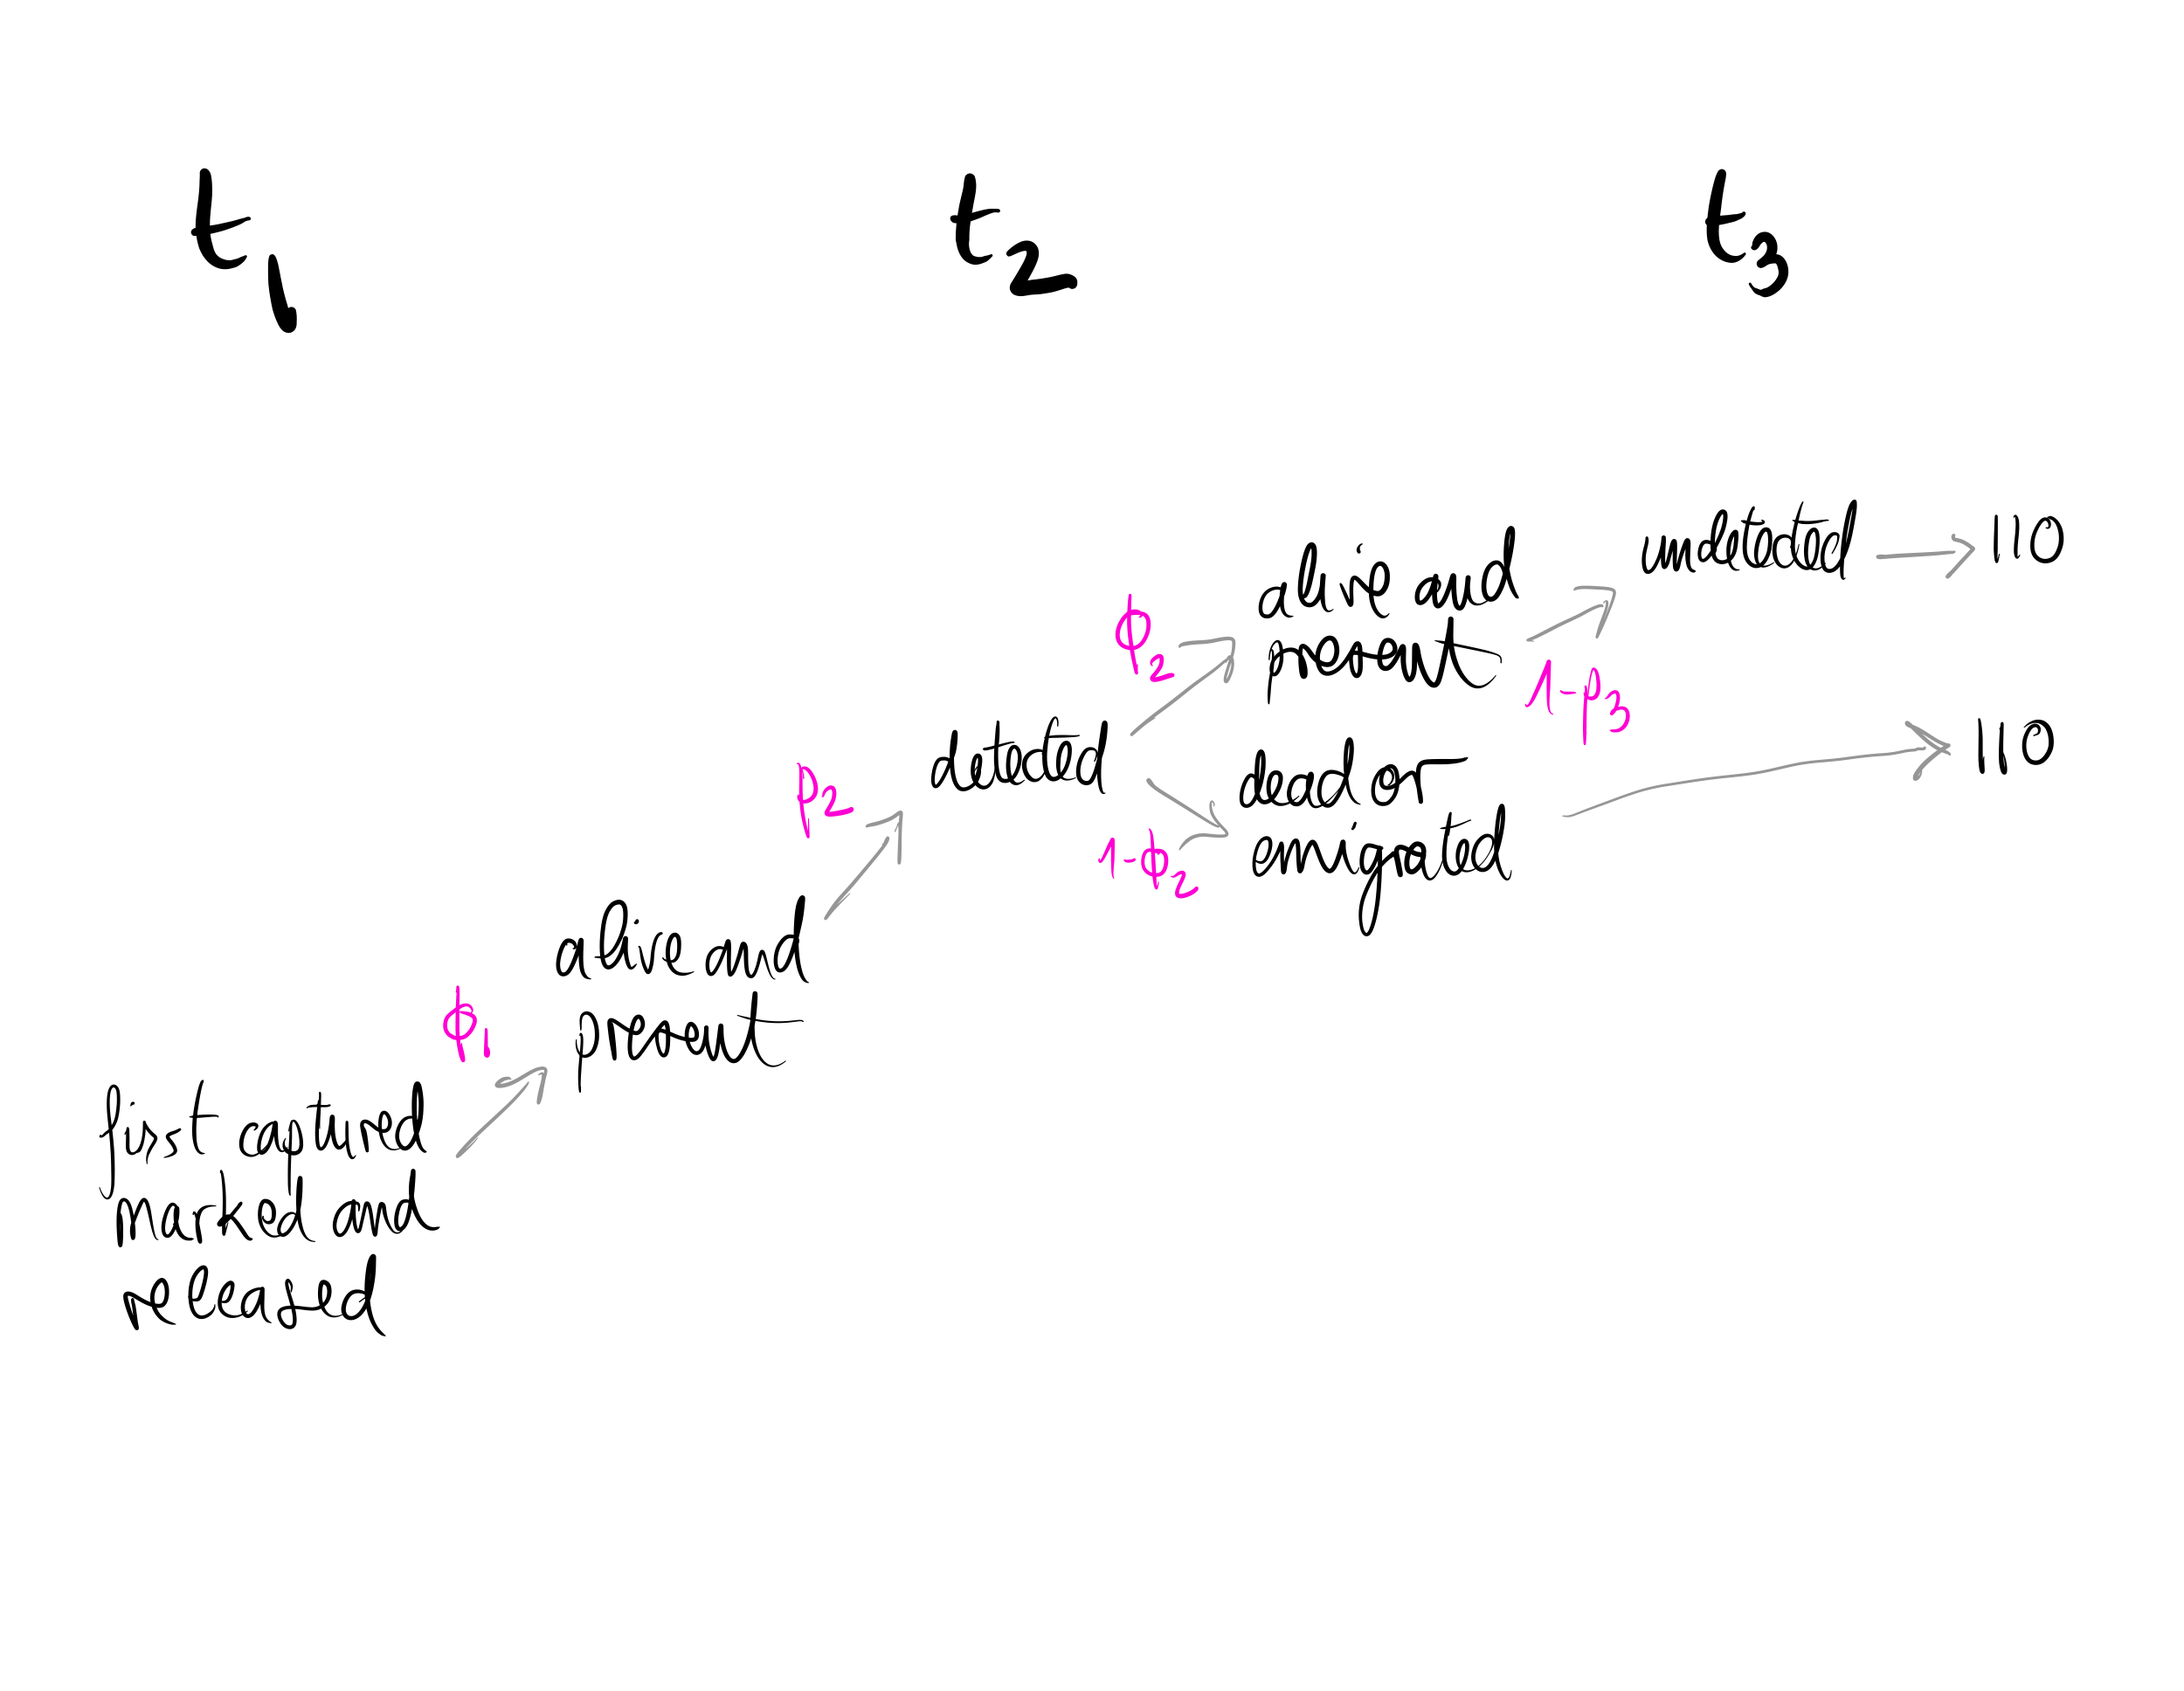 t₁ t₂ t₃
first captured
marked and
released
ϕ₁
alive and
present
p₂
detected
ϕ₂
alive and
present
1-p₃
undetected
110
1-ϕ₂
dead or
emigrated
110